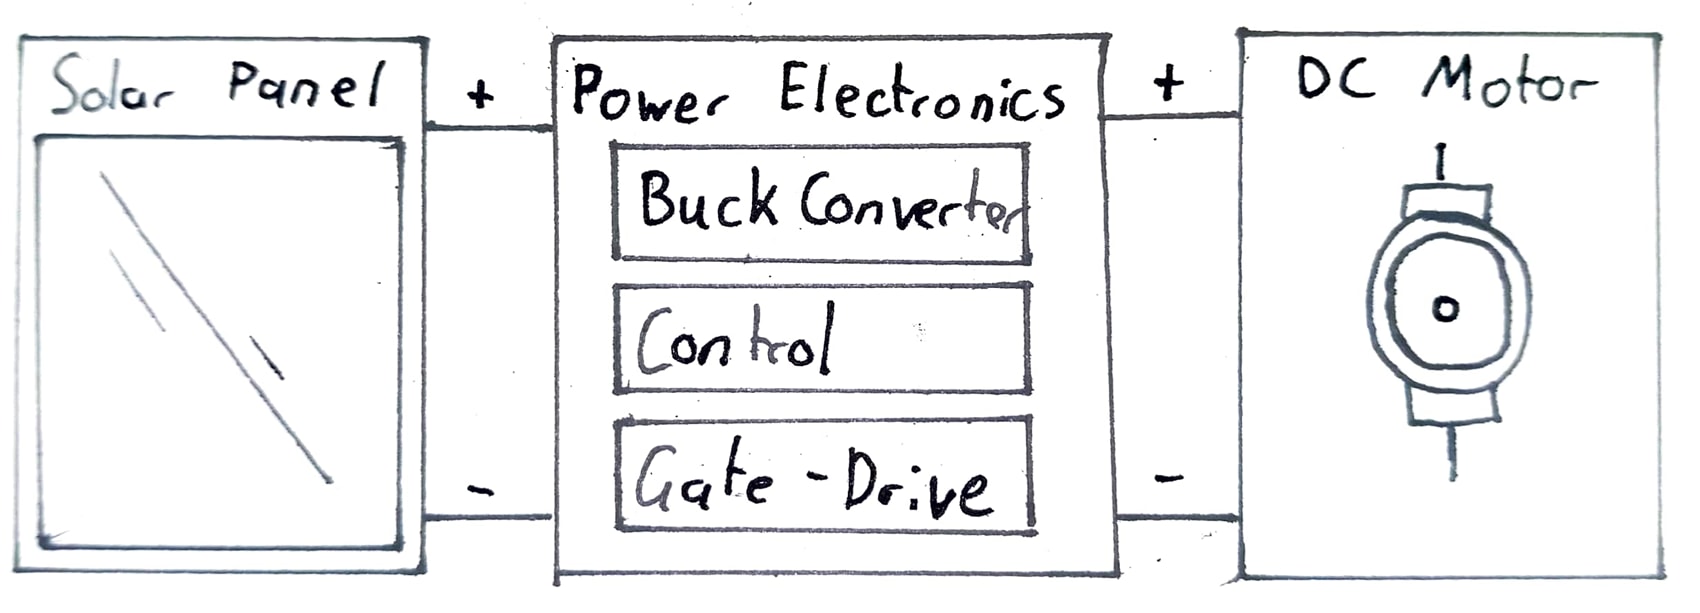 Solar Panel
+
-
Power Electronics
Buck Converter
Control
Gate-Drive
+
-
DC Motor